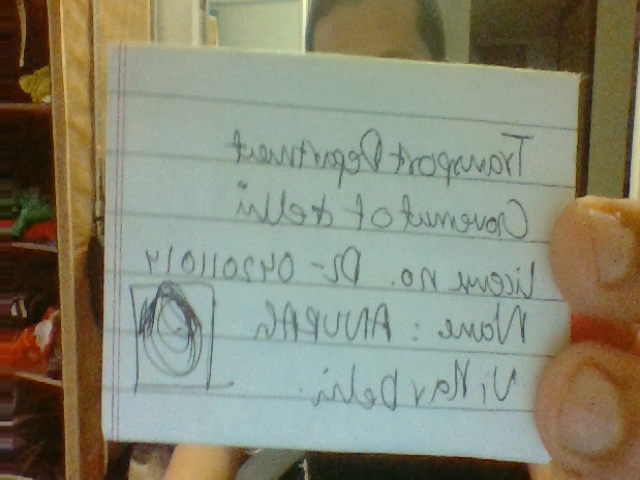 Transport Department
Government of delhi
License no. DL-042011014
Name: ANUPAG
Vihar Delhi.